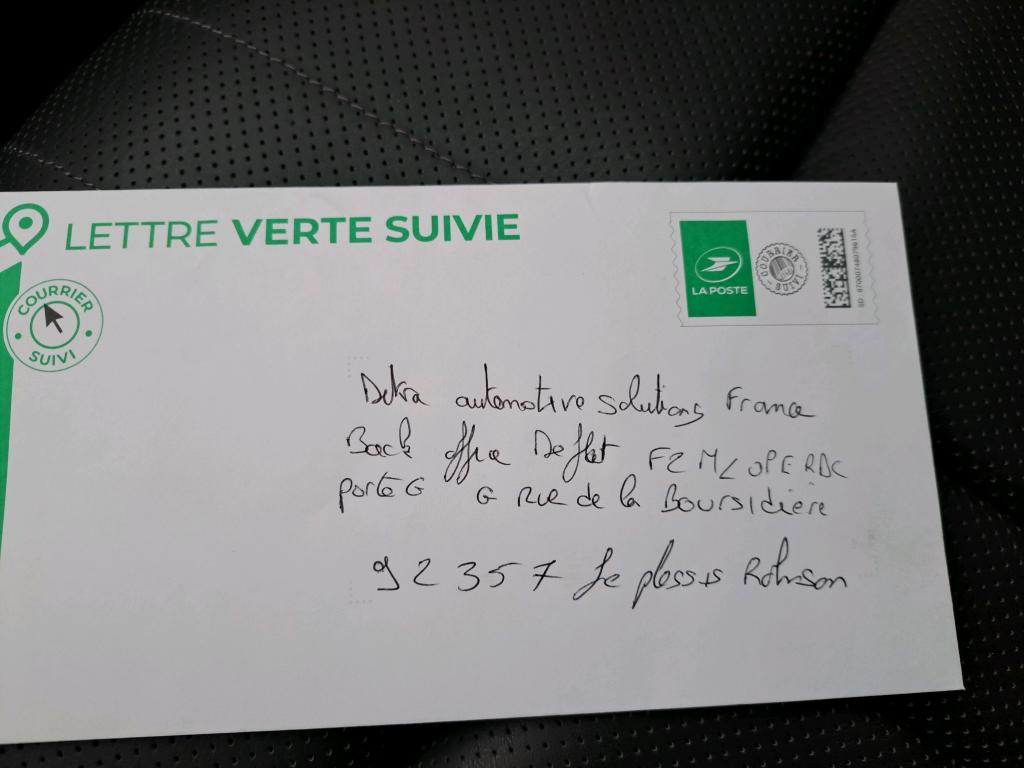 LETTRE VERTE SUIVIE
COURRIER
SUIVI
LA POSTE
COURRIER
SUIVI
Dekra automotive solutions France
Back office Deflet F2 M
porte G G Rue de la Boursidière
92357 Le plessis Robinson